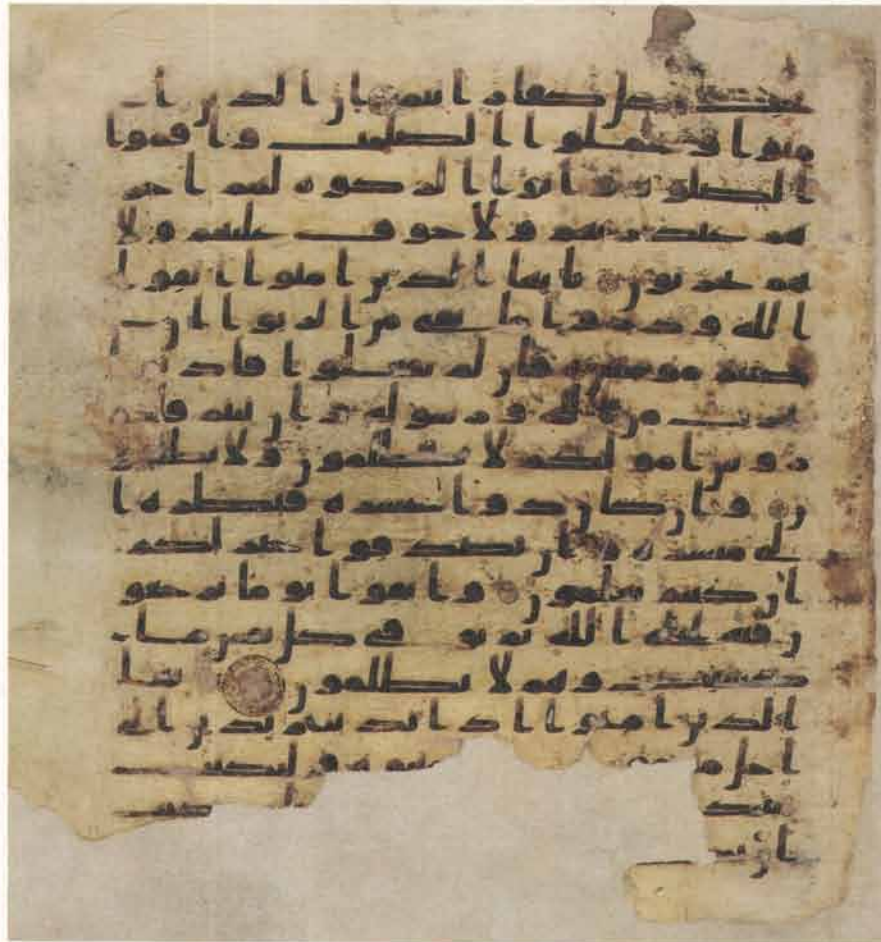 يحب كل كفار اثيم ان الذين ا
منوا وعملوا الصلحت واقموا
الصلوه واتوا الزكوه لهم اجر
هم عند ربهم ولا خوف عليهم ولا
هم يحزنون يايها الذين امنوا اتقوا
الله وذروا ما بقى من الربوا ان
كنتم مومنين فان لم تفعلوا فاذنوا
بحرب من الله ورسوله وان تبتم فلكم
روس امولكم لا تظلمون ولا تظلمو
ن وان كان ذو عسره فنظره ا
لى ميسره وان تصدقوا خير لكم
ان كنتم تعلمون واتقوا يوما ترجعو
ن فيه الى الله ثم توفى كل نفس ما
كسبت وهم لا يظلمون يايها
الذين امنوا اذا تداينتم بدين الى
اجل مسمى فاكتبوه وليكتب
بينكم كتب
ان يكتب